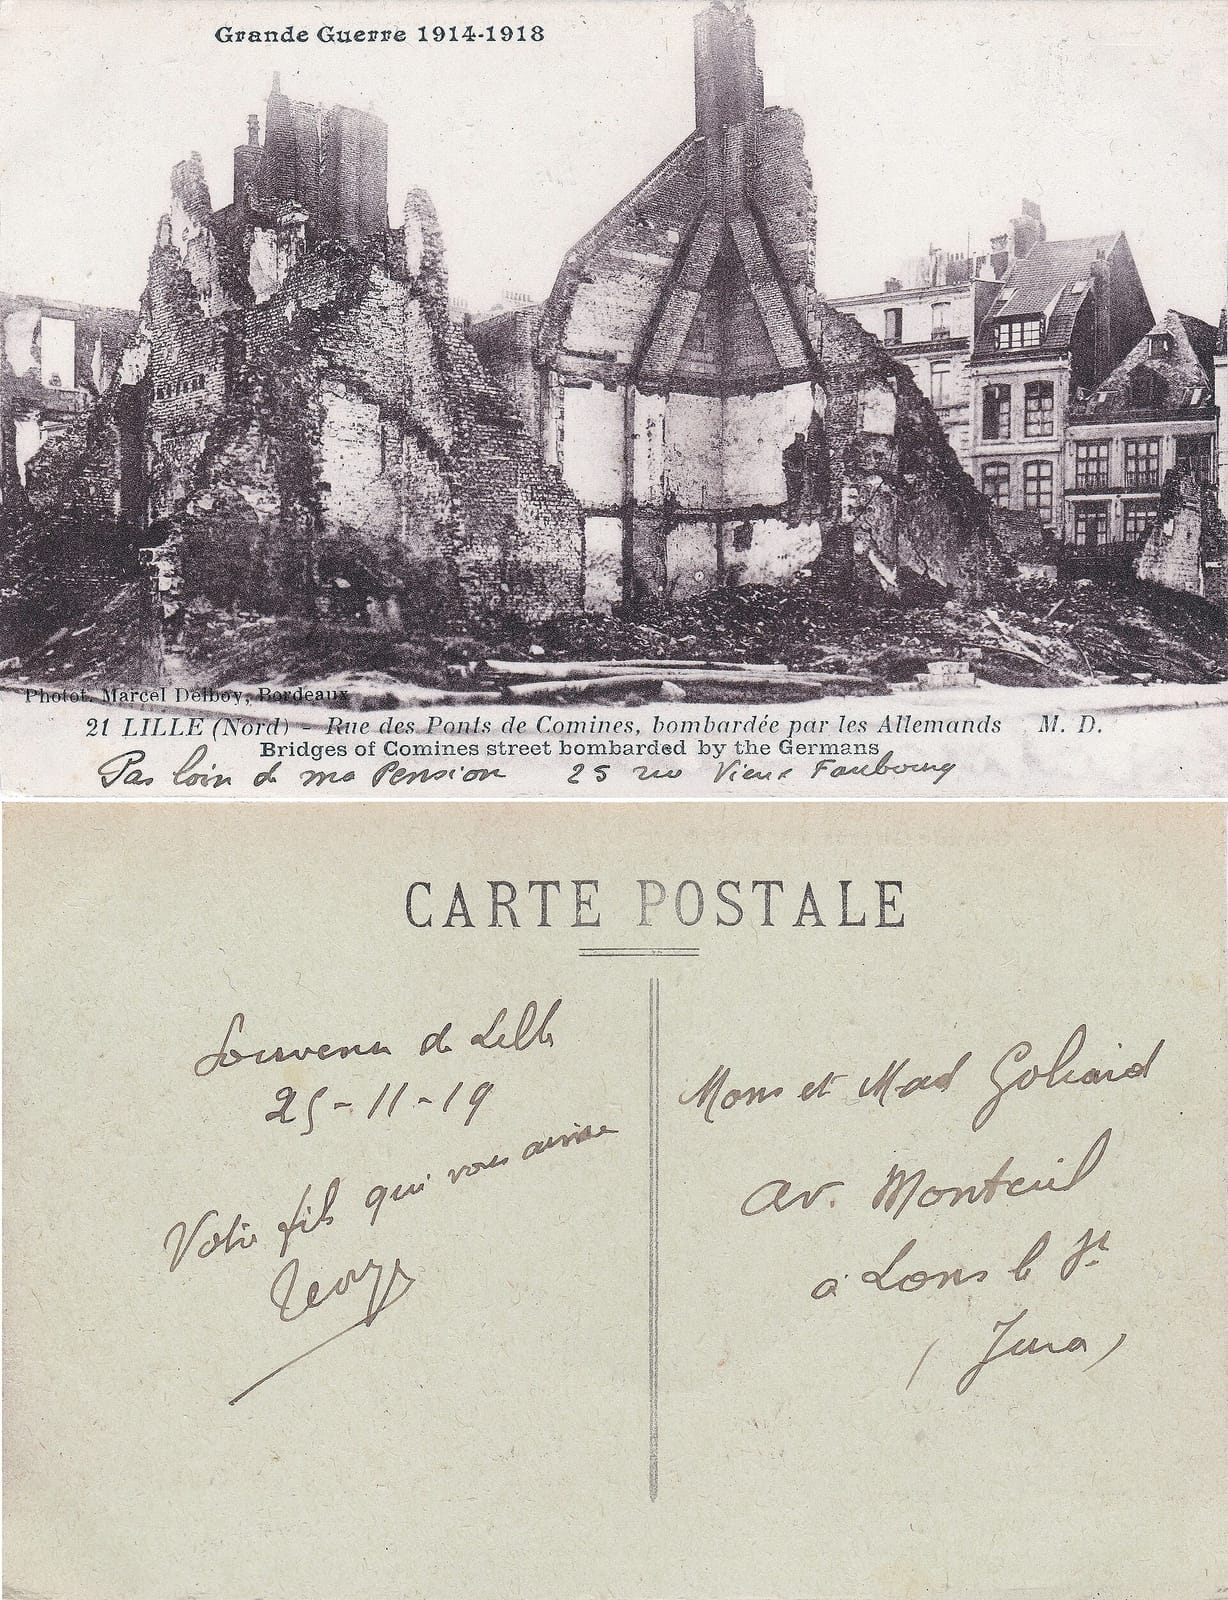 Grande Guerre 1914-1918
Photot. Marcel Delboy, Bordeaux
21 LILLE (Nord) - Rue des Ponts de Comines, bombardée par les Allemands M. D.
Bridges of Comines street bombarded by the Germans
Pas loin de ma Pension 25 rue Vieux Faubourg
CARTE POSTALE
Souvenir de Lille
25-11-19
Votre fils qui vous aime
Mons et Mad Goliard
av. Monteuil
à Lons le St
(Jura)